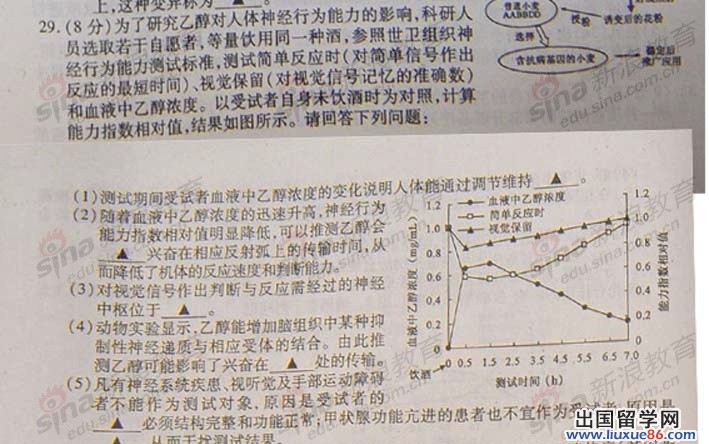 上,这种变异称为 ▲ 。
普通小麦
AABBDD
授粉
诱变后的花粉
选择
含抗病基因的小麦
稳定后
推广应用
29.(8分)为了研究乙醇对人体神经行为能力的影响,科研人
员选取若干自愿者,等量饮用同一种酒,参照世卫组织神
经行为能力测试标准,测试简单反应时(对简单信号作出
反应的最短时间)、视觉保留(对视觉信号记忆的准确数)
和血液中乙醇浓度。以受试者自身未饮酒时为对照,计算
能力指数相对值,结果如图所示。请回答下列问题:
(1)测试期间受试者血液中乙醇浓度的变化说明人体能通过调节维持 ▲ 。
(2)随着血液中乙醇浓度的迅速升高,神经行为
能力指数相对值明显降低,可以推测乙醇会
▲ 兴奋在相应反射弧上的传输时间,从
而降低了机体的反应速度和判断能力。
(3)对视觉信号作出判断与反应需经过的神经
中枢位于 ▲ 。
(4)动物实验显示,乙醇能增加脑组织中某种抑
制性神经递质与相应受体的结合。由此推
测乙醇可能影响了兴奋在 ▲ 处的传输。
(5)凡有神经系统疾患、视听觉及手部运动障碍
者不能作为测试对象,原因是受试者的
▲ 必须结构完整和功能正常;甲状腺功能亢进的患者也不宜作为受试者,原因是
▲ ,从而干扰测试结果。
血液中乙醇浓度
简单反应时
视觉保留
血液中乙醇浓度 (mg/mL)
1.2
1.0
0.8
0.6
0.4
0.2
0
能力指数相对值
1.2
1.0
0.8
0.6
0.4
0.2
0
0 0.5 1.5 2.5 3.5 4.5 5.5 6.5 7.0
饮酒
测试时间 (h)
sina 新浪教育
edu.sina.com.cn
出国留学网
www.liuxue86.com